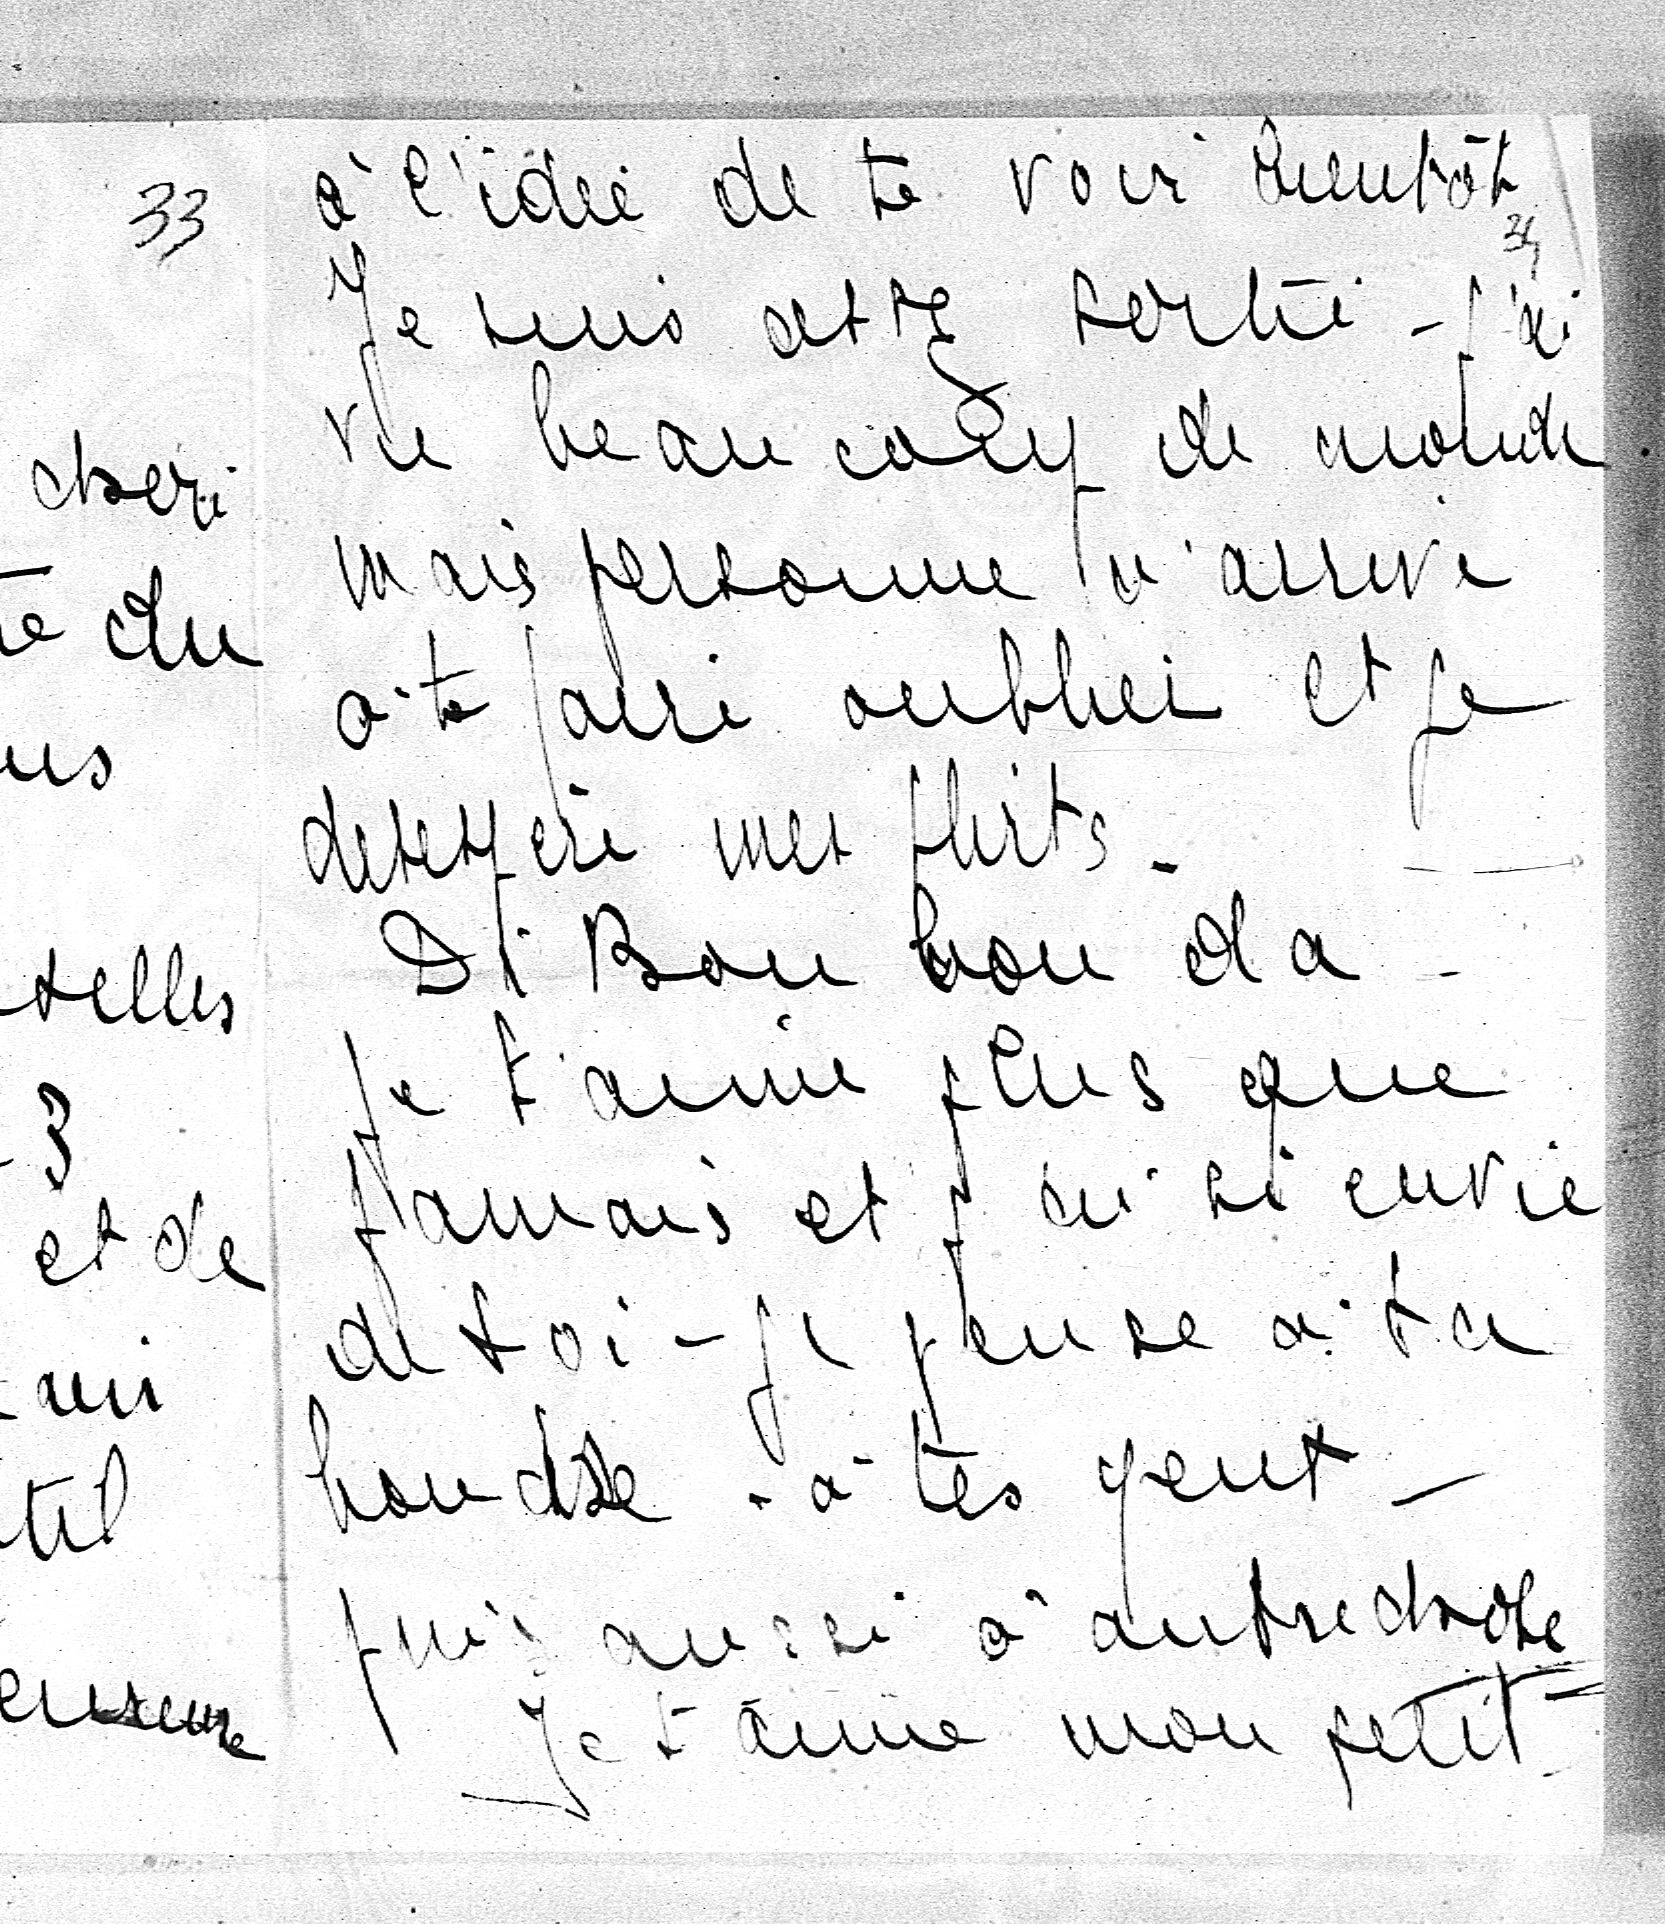 33
chéri
te du
us
selles
3
et de
til
à l'idée de te voir bientôt
34
Je suis assez sortie - j'ai
vu beaucoup de monde
mais personne n'arrive
à te faire oublier et je
desespère mes flirts -
Di Bou bou da -
je t'aime plus que
jamais et j'ai si envie
de toi - je pense à ta
bouche - à tes yeux -
puis aussi à autre chose
Je t'aime mon petit -